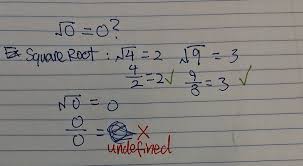 √0 = 0?
Ex Square Root: √4 = 2 √9 = 3
4/2 = 2 ✓ 9/3 = 3 ✓
√0 = 0
0/0 = ✗
undefined